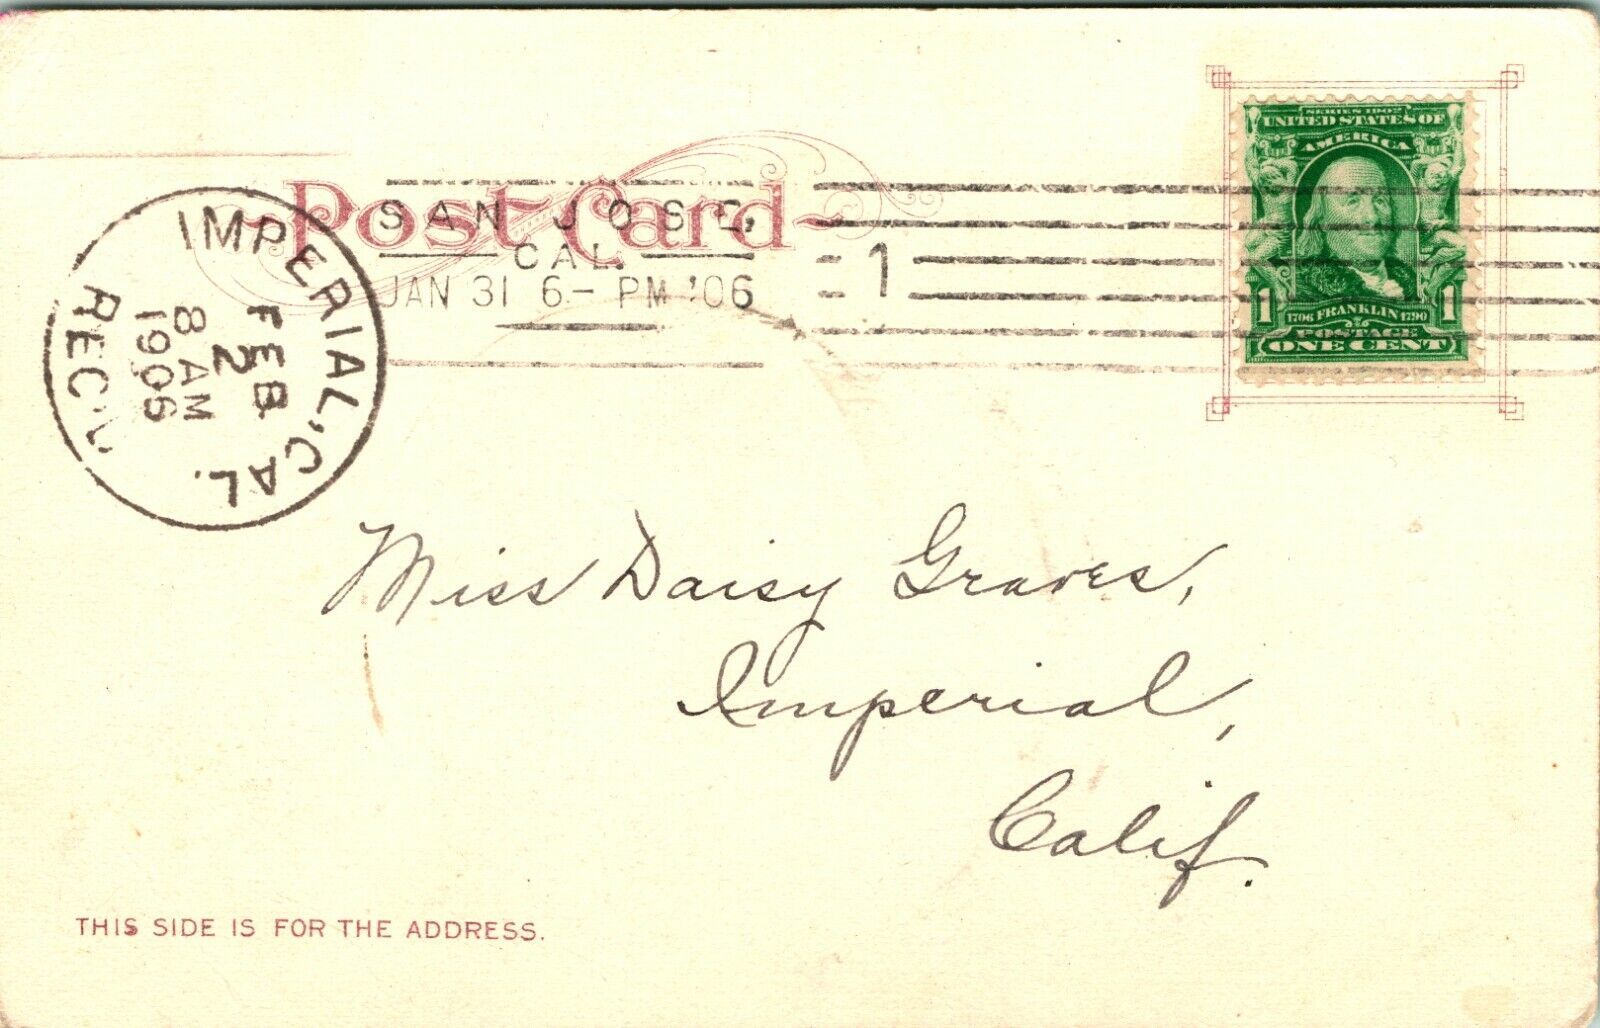 Post Card
SAN JOSE,
CAL.
JAN 31 6- PM '06
1
IMPERIAL, CAL.
FEB
2
8 AM
1906
REC'D.
SERIES 1902
UNITED STATES OF
AMERICA
1 1706 FRANKLIN 1790 1
POSTAGE
ONE CENT
Miss Daisy Graves,
Imperial,
Calif.
THIS SIDE IS FOR THE ADDRESS.